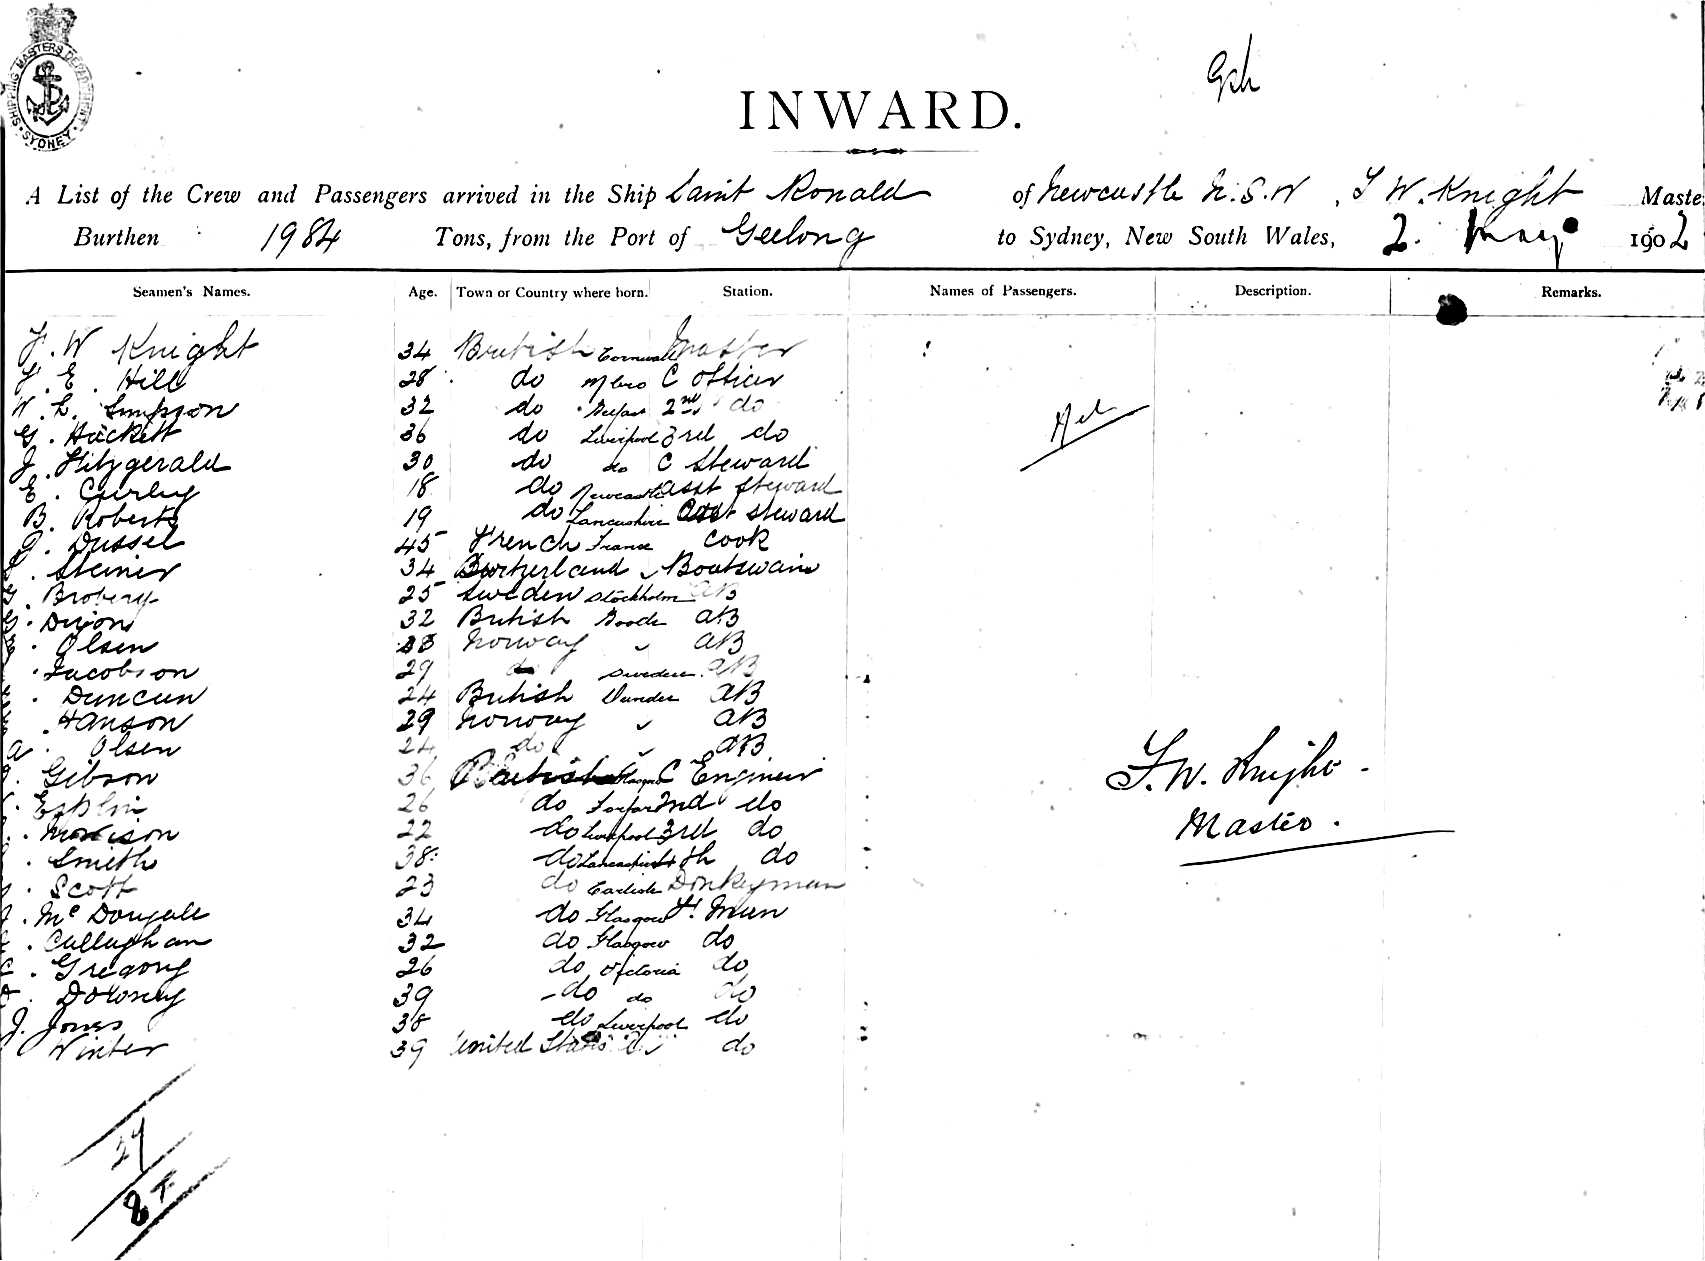 SHIPPING MASTERS DEPARTMENT
SYDNEY
INWARD.
A List of the Crew and Passengers arrived in the Ship Saint Ronald of Newcastle N.S.W, F W. Knight Maste
Burthen 1984 Tons, from the Port of Geelong to Sydney, New South Wales, 2. May 1902
Seamen's Names. Age. Town or Country where born. Station. Names of Passengers. Description. Remarks.
F. W Knight 34 British Cornwall Master
F. E. Hill 28 do C Officer
W. L. Simpson 32 do Belfast 2nd do
G. Hackett 36 do Liverpool 3rd do
J. Fitzgerald 30 do do C Steward
E. Curley 18 do Newcastle asst Steward
B. Roberts 19 do Lancashire asst Steward
J. Dussel 45 French France Cook
Steiner 34 Switzerland " Boatswain
Broberg 25 Sweden Stockholm AB
G. Dixon 32 British Goole AB
Olsen 33 Norway " AB
Jacobson 29 do Sweden AB
Duncan 24 British Dundee AB
Hanson 29 Norway " AB
A. Olsen 24 do " AB
Gibson 36 British Glasgow C Engineer
Esplin 26 do Forfar 2nd do
Morrison 22 do Liverpool 3rd do
Smith 38 do Lancashire 4th do
Scott 23 do Carlisle Donkeyman
J. McDougall 34 do Glasgow F. Man
Callaghan 32 do Glasgow do
Gregory 26 do Victoria do
Downey 39 do do do
J. Jones 38 do Liverpool do
Winter 39 United States do
F. W. Knight
Master.
27
8